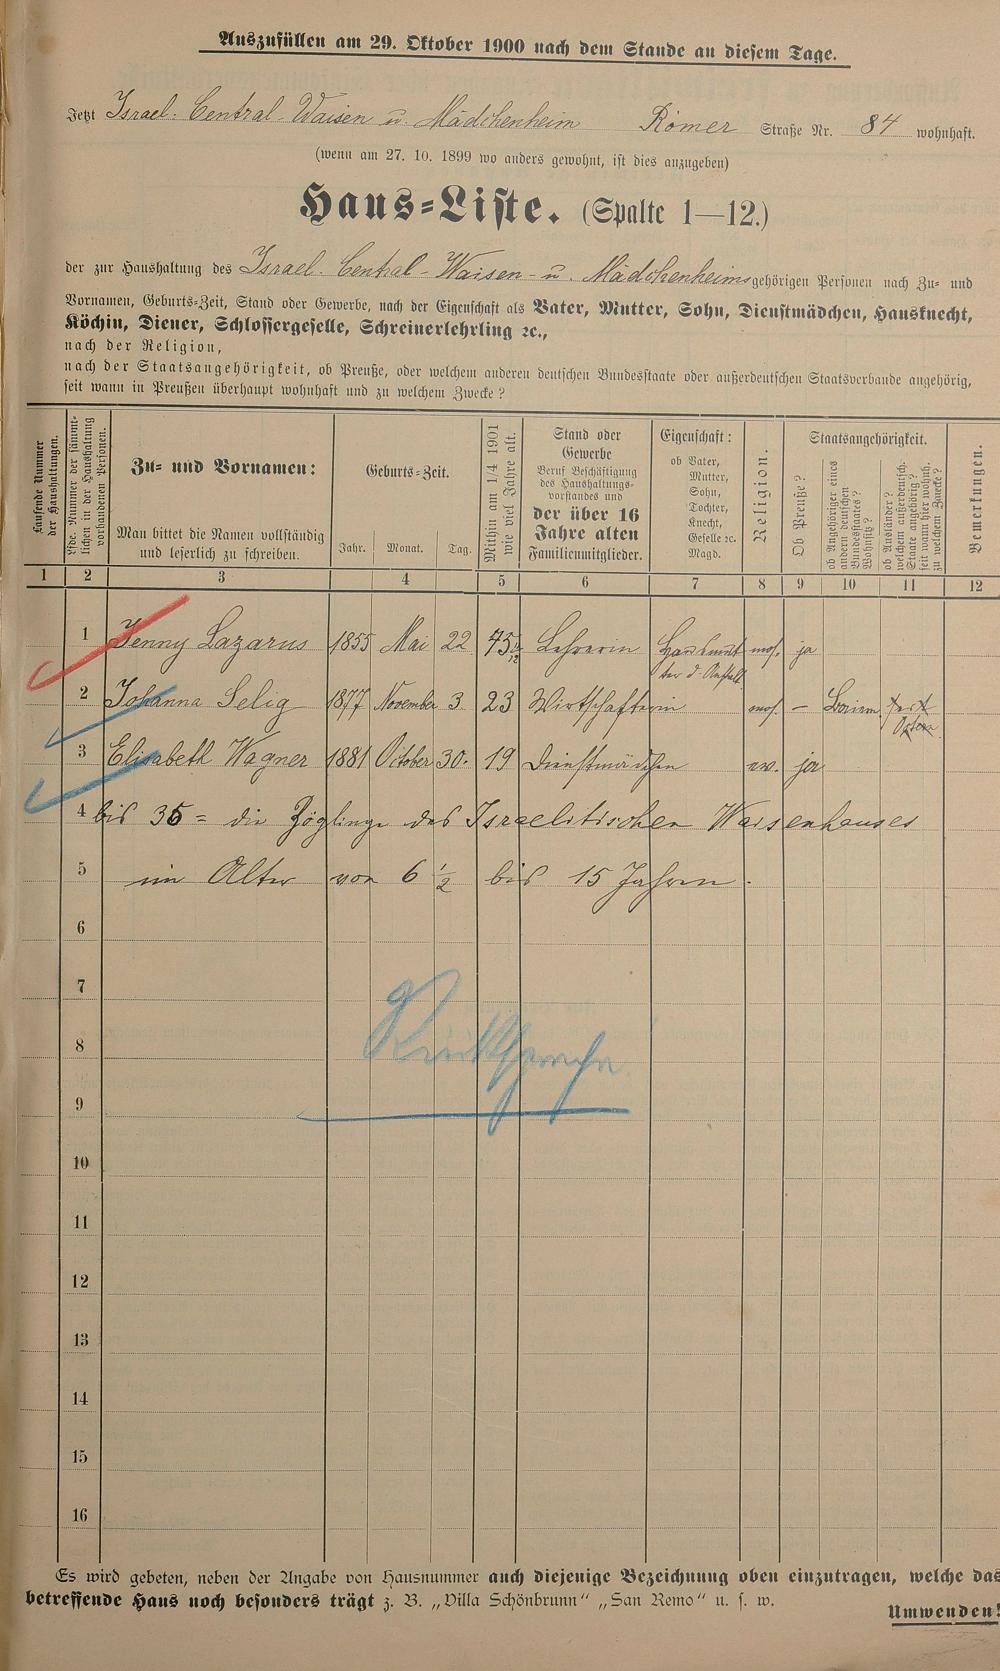 Auszufüllen am 29. Oktober 1900 nach dem Stande an diesem Tage.
Jetzt Israel. Central-Waisen u. Mädchenheim Römer Straße Nr. 84 wohnhaft.
(wenn am 27. 10. 1899 wo anders gewohnt, ist dies anzugeben)
Haus-Liste. (Spalte 1—12.)
der zur Haushaltung des Israel. Central-Waisen- u. Mädchenheims gehörigen Personen nach Zu- und
Vornamen, Geburts-Zeit, Stand oder Gewerbe, nach der Eigenschaft als Vater, Mutter, Sohn, Dienstmädchen, Hausknecht,
Köchin, Diener, Schlossergeselle, Schreinerlehrling ꝛc.,
nach der Religion,
nach der Staatsangehörigkeit, ob Preuße, oder welchem anderen deutschen Bundesstaate oder außerdeutschen Staatsverbande angehörig,
seit wann in Preußen überhaupt wohnhaft und zu welchem Zwecke?
Laufende Nummer
der Haushaltungen.
Lfde. Nummer der sämmt-
lichen in der Haushaltung
vorhandenen Personen.
Zu- und Vornamen:
Man bittet die Namen vollständig
und leserlich zu schreiben.
Geburts-Zeit.
Jahr. Monat. Tag.
Mithin am 1/4 1901
wie viel Jahre alt.
Stand oder
Gewerbe
Beruf Beschäftigung
des Haushaltungs-
vorstandes und
der über 16
Jahre alten
Familienmitglieder.
Eigenschaft:
ob Vater,
Mutter,
Sohn,
Tochter,
Knecht,
Geselle ꝛc.
Magd.
Religion.
Staatsangehörigkeit.
Ob Preuße?
ob Angehöriger eines
andern deutschen
Bundesstaates?
Wohnsitz?
ob Ausländer?
welchem außerdeutsch.
Staate angehörig?
seit wann hier wohnh.
zu welchem Zwecke?
Bemerkungen.
1 2 3 4 5 6 7 8 9 10 11 12
1 Jenny Lazarus 1855 Mai 22 Lehrerin mos. ja
der d. Anstalt
2 Johanna Selig 1877 November 3. 23 Wirtschafterin mos. –
3 Elisabeth Wagner 1881 October 30. 19 Dienstmädchen ev. ja
4 bis 35 = die Zöglinge des Israelitischen Waisenhauses
5 im Alter von 6 1/2 bis 15 Jahren.
6
7
8 Rücksprache.
9
10
11
12
13
14
15
16
Es wird gebeten, neben der Angabe von Hausnummer auch diejenige Bezeichnung oben einzutragen, welche das
betreffende Haus noch besonders trägt z. B. „Villa Schönbrunn“ „San Remo“ u. s. w.
Umwenden!